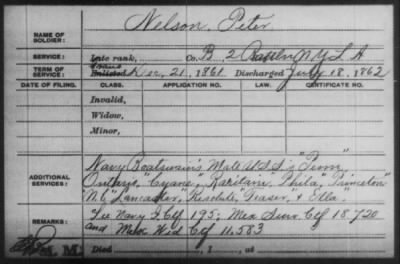 Nelson, Peter
NAME OF SOLDIER:
SERVICE: Late rank, Co. B, 2 Battln N.Y. L. A
TERM OF SERVICE: Enlisted Dec. 21, 1861 Discharged July 18, 1862
DATE OF FILING. CLASS. APPLICATION NO. LAW. CERTIFICATE NO.
Invalid,
Widow,
Minor,
Navy Boatswain's Mate U.S.S.
ADDITIONAL SERVICES: Ontario, "Cyane", Raritan, "Phila", "Princeton"
N.C, Lancaster, Resolute, Teaser, & Ella."
REMARKS: See Navy I Ctf 195; Mex Surv. Ctf 18720
and Mex Wid Ctf 11,583
Died , 1 , at